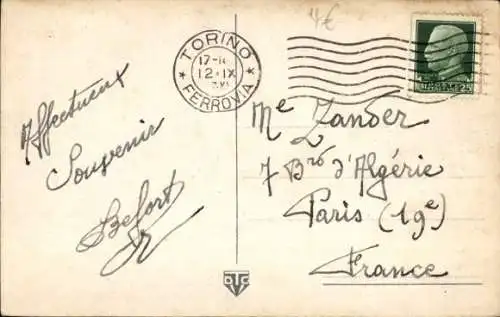 4€
TORINO
17-18
12·IX
XVI
FERROVIA
25
Affectueux
Souvenir
Befort
Me Zander
7 Brd d'Algérie
Paris (19e)
France